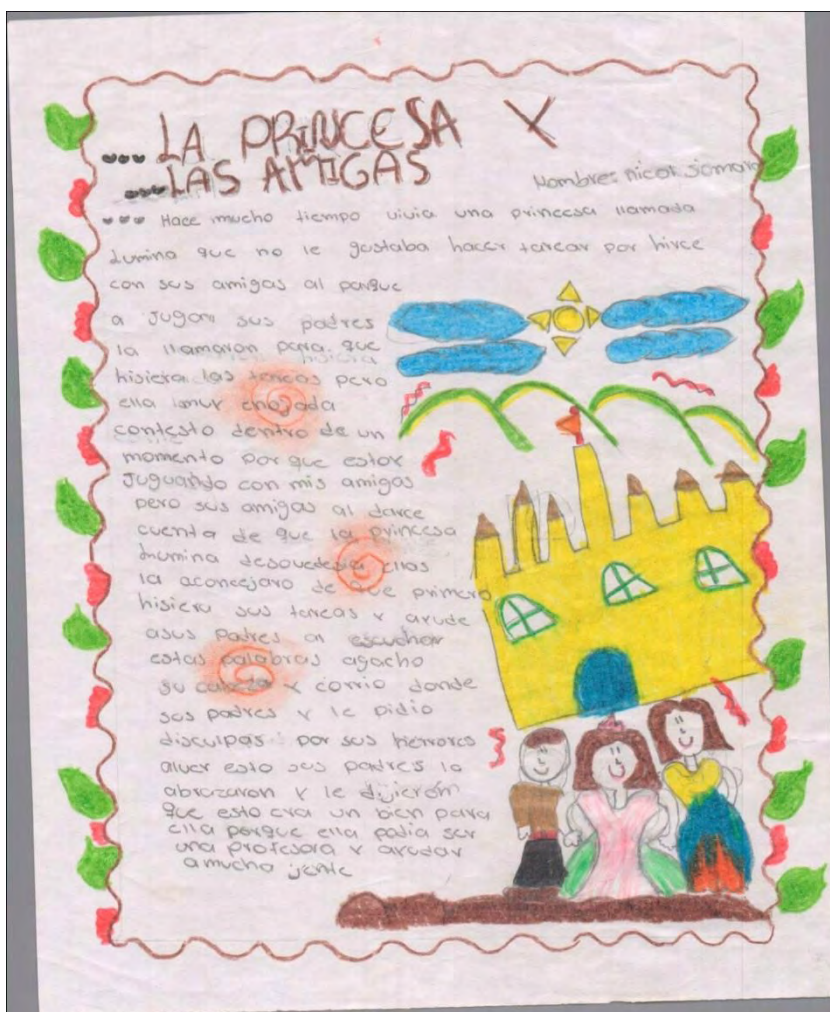 LA PRINCESA Y
LAS AMIGAS
Nombre: nicol
Hace mucho tiempo vivia una princesa llamada
que no le gustaba hacer tarear por hirce
con sus amigas al parque
a jugar sus padres
la llamaron para que
hisiera
hisiera las tareas pero
ella muy enojada
contesto dentro de un
momento por que estoy
juguando con mis amigas
pero sus amigas al darce
cuenta de que la princesa
desovedesia ellas
la aconcejaro de que primero
hisiera sus tareas y ayude
asus padres al escuchar
estas palabras agacho
su cabeza y corrio donde
sus padres y le pidio
disculpas por sus herrores
aluer esto sus padres la
abrazaron y le dijieron
que esto era un bien para
ella porque ella podia ser
una profesora y ayudar
amucha jente